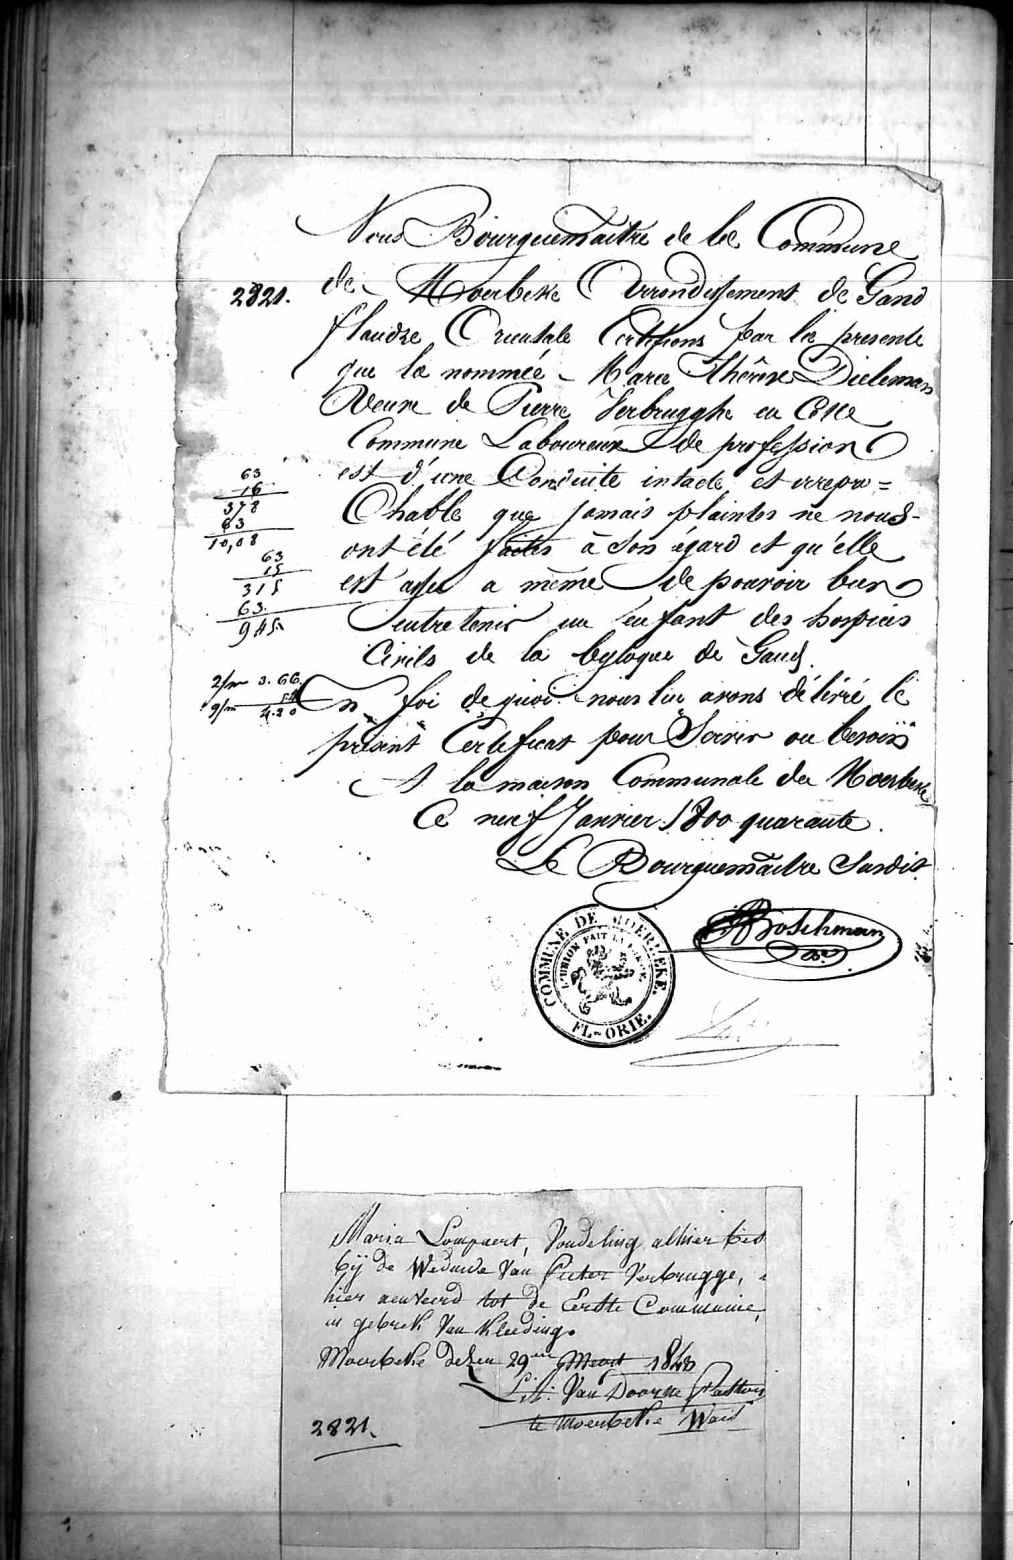 Nous Bourguemaitre de la Commune
2821.
de Moerbeke Arrondissement de Gand
flandre Orientale Certifions par la presente
que la nommée - Marie Thérèse Dieleman
Veuve de Pierre Verbrugghe en Cette
Commune Laboureuse de profession
est d'une Conduite intacte et irrepro=
Chable que jamais plaintes ne nous
ont été faites à Son egard et qu'elle
est assez a même de pouvoir bien
entretenir un enfant des hospices
Civils de la byloque de Gand.
En foi de quoi nous lui avons délivré le
présent Certificat pour Servir au besoin
A la maison Communale de Moerbeke
Ce neuf Janvier 1800 quarante.
Le Bourguemaitre Susdit
63
16
378
63
10,08
63
15
315
63.
945.
2/m 3.66.
9/m 54
4.20
Boschman
COMMUNE DE MOERBEKE.
L'UNION FAIT LA FORCE.
FL-ORIE.
Maria Lompaert, Vondeling alhier bes
bij de Weduwe Van Pieter Verbrugge,
hier aenveerd tot de Eerste Communie,
in gebrek Van Kleeding.
Moerbeke dezen 29 Meert 1840
Van Doorne Pastoor
te Moerbeke Waes
2821.